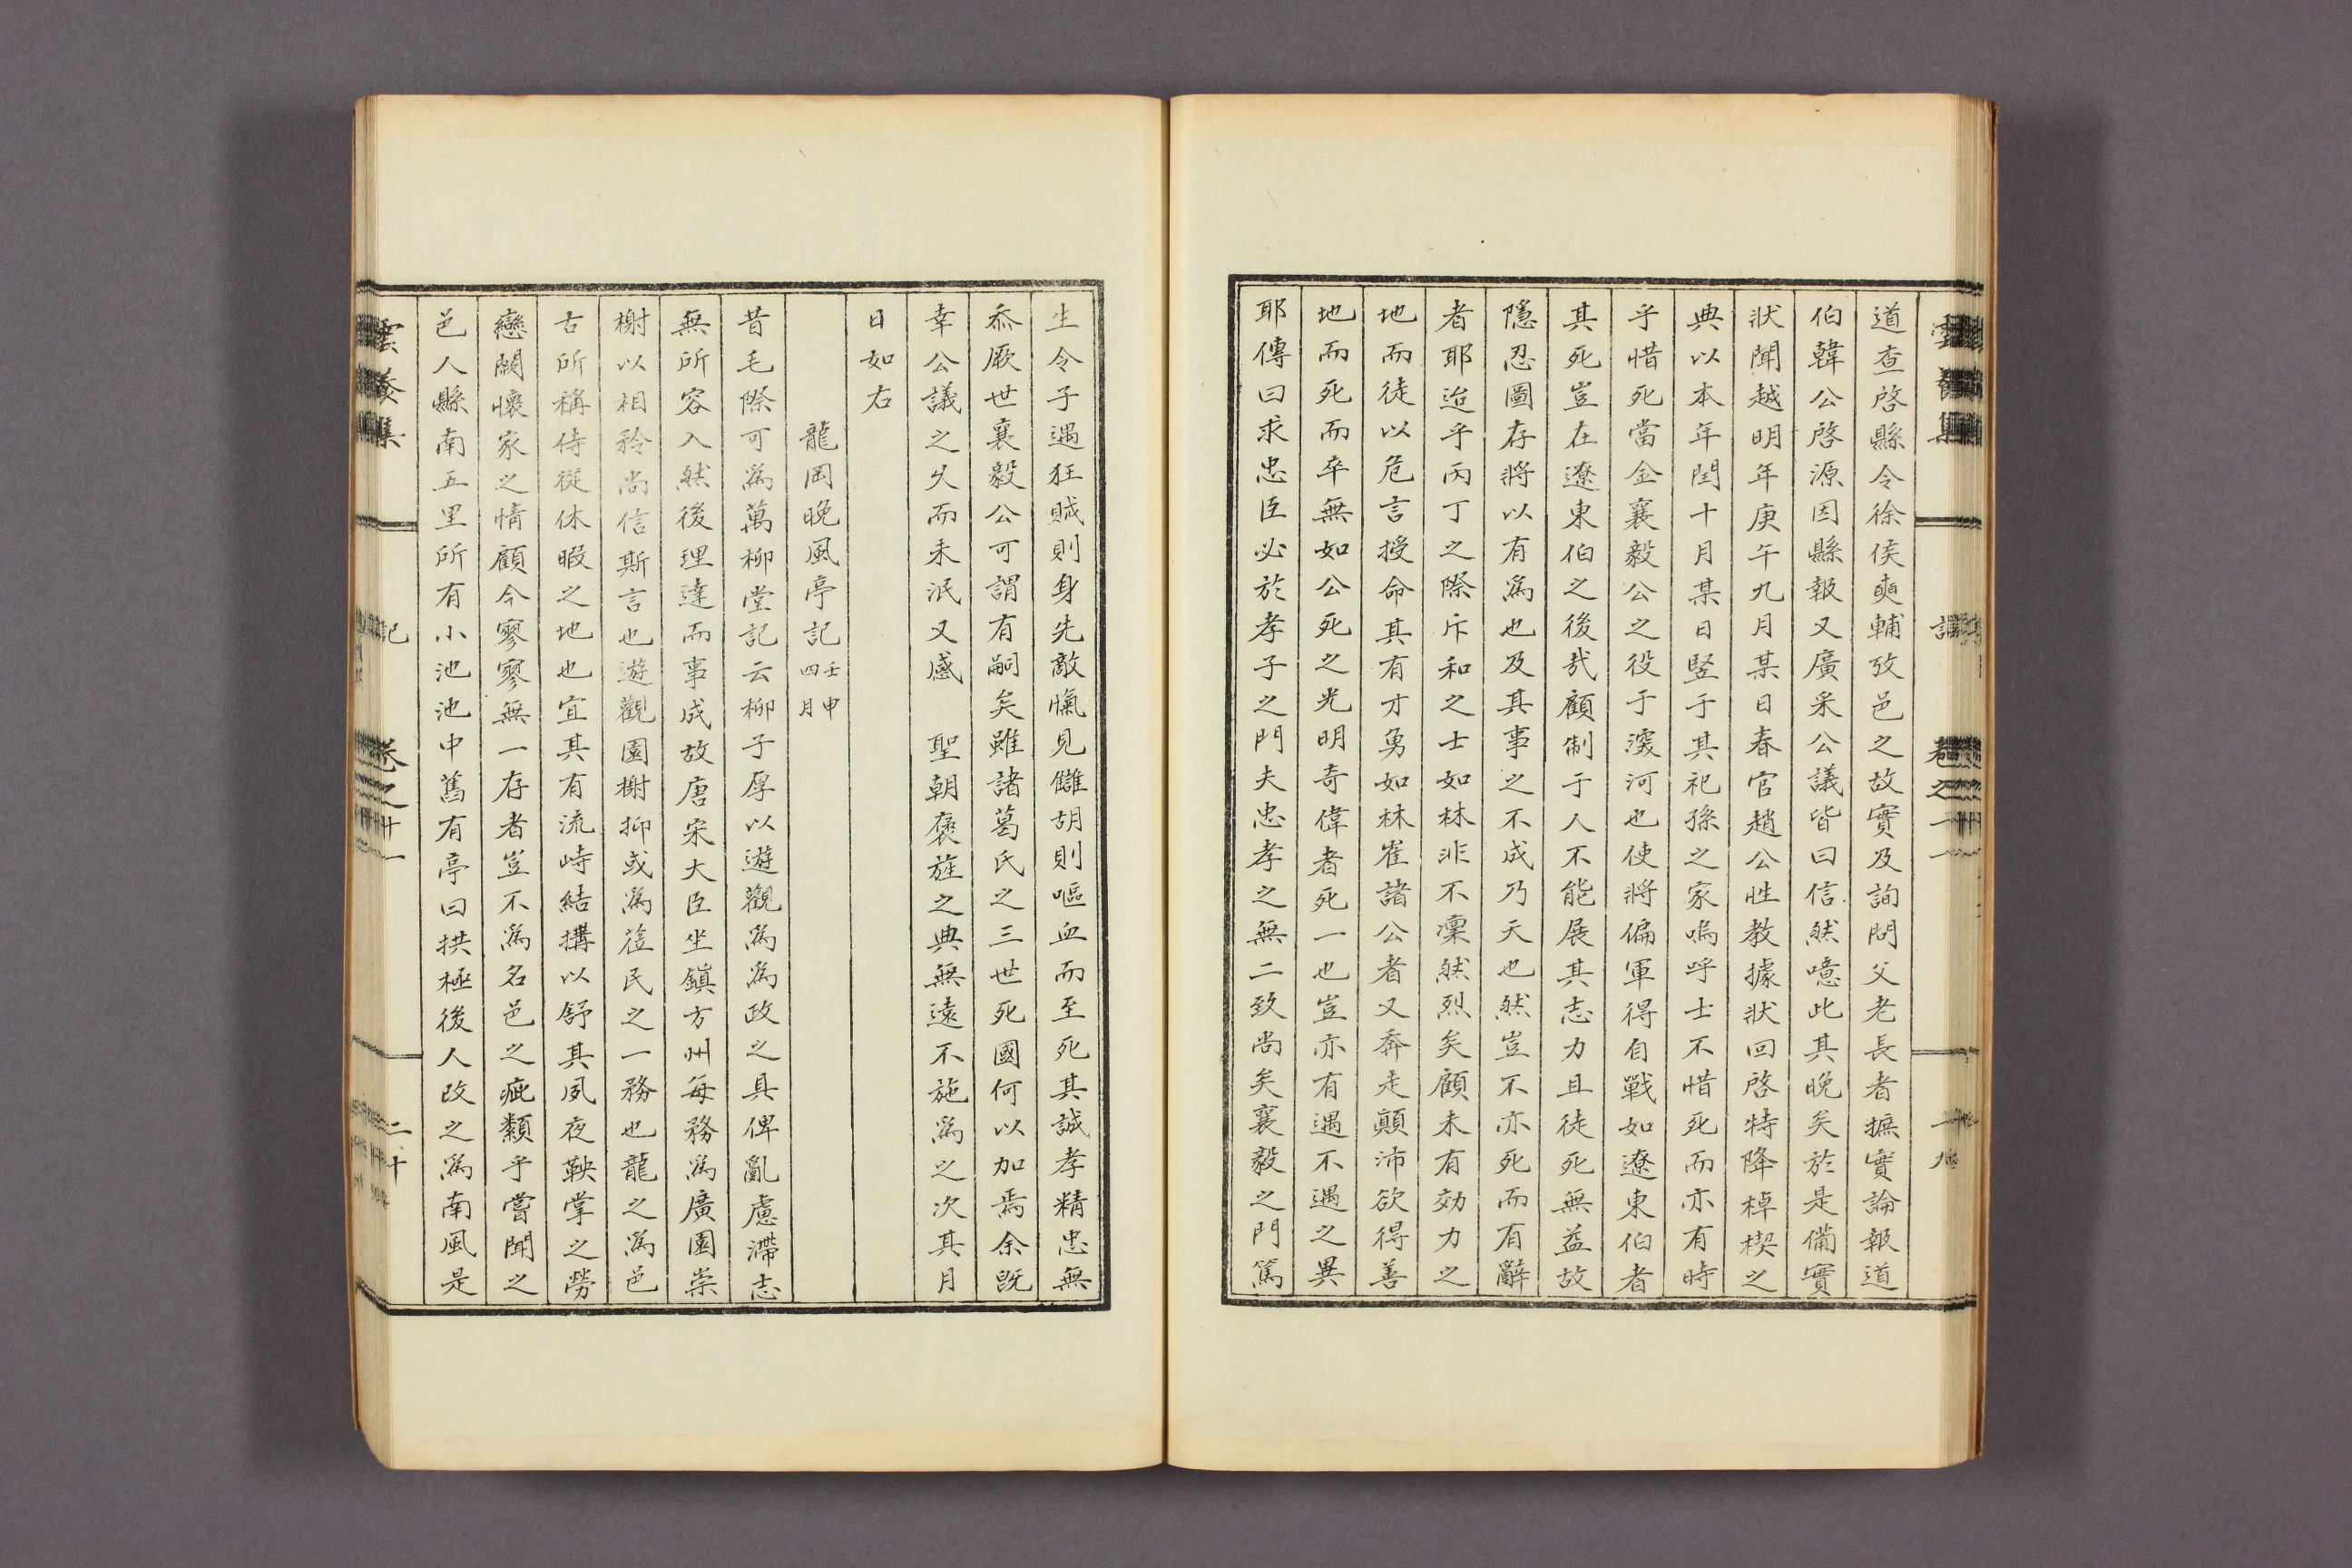 道查啓縣令徐侯奭輔攷邑之故實及詢問父老長者摭實論報道
伯韓公啓源因縣報又廣采公議皆曰信然噫此其晚矣於是備實
狀聞越明年庚午九月某日春官趙公性教據狀回啓特降棹楔之
典以本年閏十月某日竪于其祀孫之家嗚呼士不惜死而亦有時
乎惜死當金襄毅公之役于深河也使將偏軍得自戰如遼東伯者
其死豈在遼東伯之後哉顧制于人不能展其志力且徒死無益故
隱忍圖存將以有爲也及其事之不成乃天也然豈不亦死而有辭
者耶迨乎丙丁之際斥和之士如林非不凜然烈矣顧未有効力之
地而徒以危言授命其有才勇如林崔諸公者又奔走顚沛欲得善
地而死而卒無如公死之光明奇偉者死一也豈亦有遇不遇之異
耶傳曰求忠臣必於孝子之門夫忠孝之無二致尚矣襄毅之門篤
生令子遇狂賊則身先敵愾見讎胡則嘔血而至死其誠孝精忠無
忝厥世襄毅公可謂有嗣矣雖諸葛氏之三世死國何以加焉余旣
幸公議之久而未泯又感 聖朝褒旌之典無遠不施爲之次其月
日如右
龍岡晚風亭記 壬申四月
昔毛際可爲萬柳堂記云柳子厚以遊觀爲爲政之具俾亂慮滯志
無所容入然後理達而事成故唐宋大臣坐鎭方州每務爲廣園崇
榭以相矜尚信斯言也遊觀園榭抑或爲莅民之一務也龍之爲邑
古所稱侍從休暇之地也宜其有流峙結搆以舒其夙夜鞅掌之勞
戀闕懷家之情顧今寥寥無一存者豈不爲名邑之疵纇乎嘗聞之
邑人縣南五里所有小池池中舊有亭曰拱極後人改之爲南風是
雲養集 記 卷之十一 二十